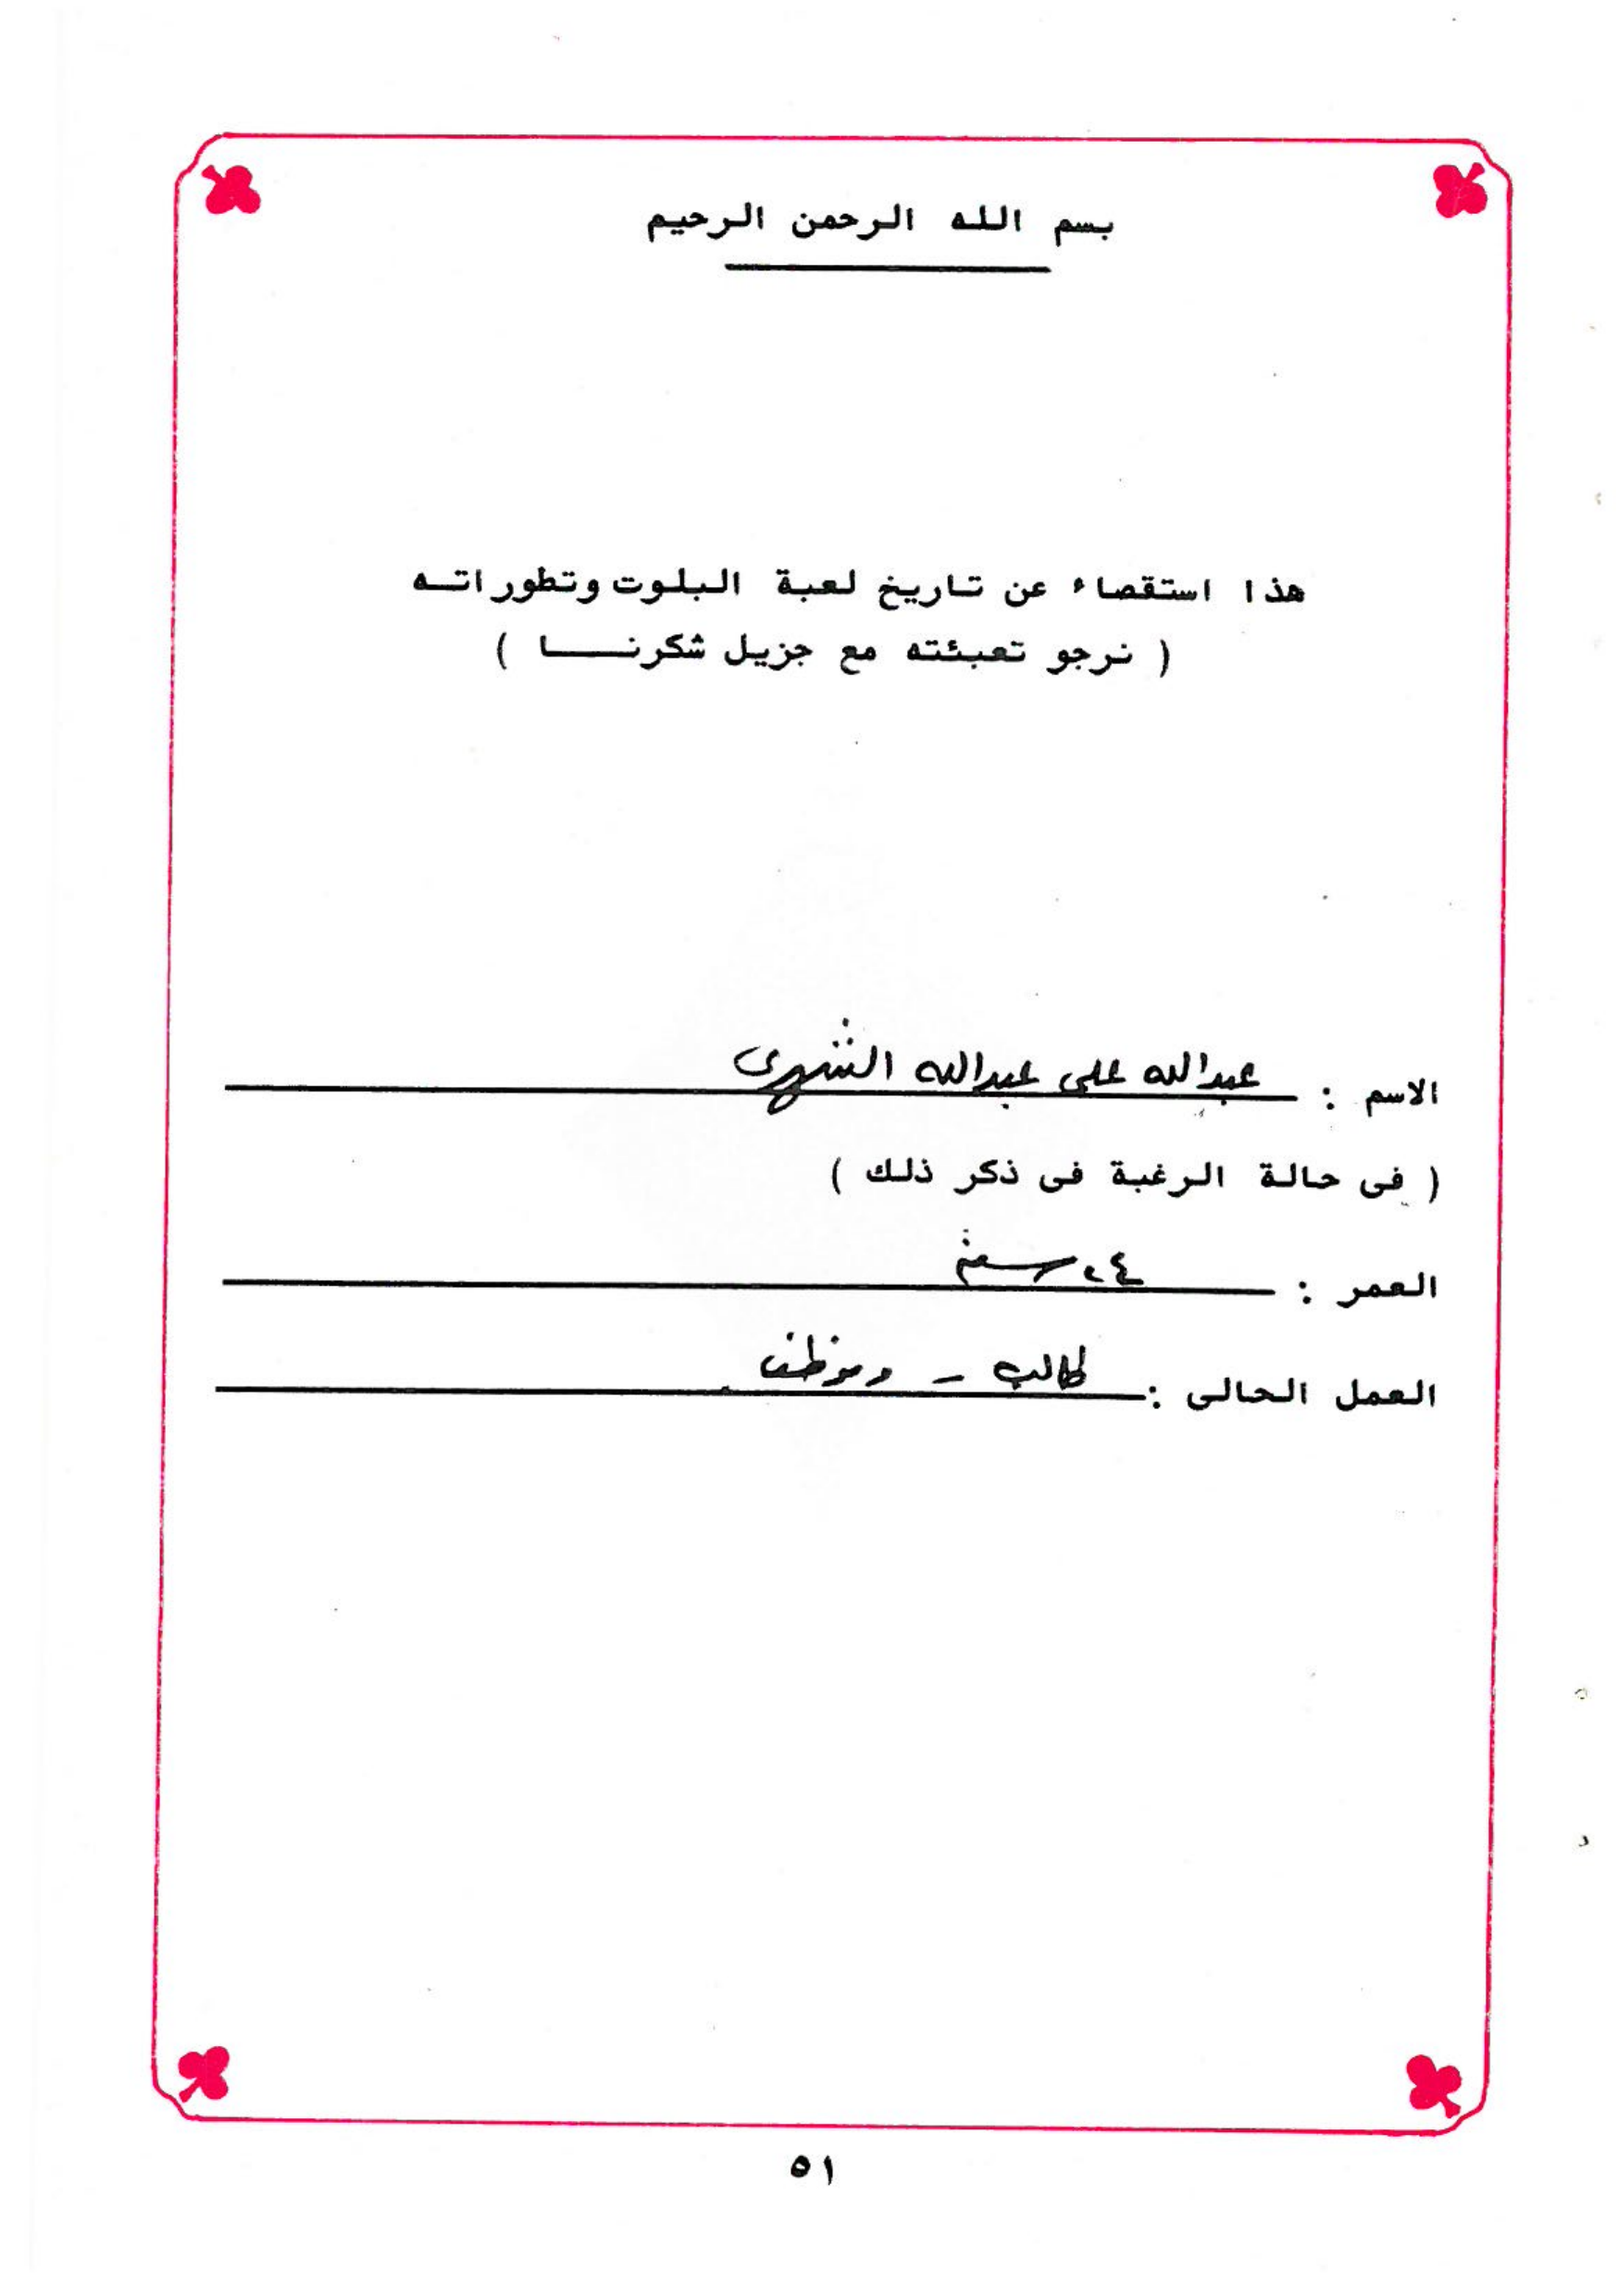 بسم الله الرحمن الرحيم
هذا استقصاء عن تاريخ لعبة البلوت وتطوراته
( نرجو تعبئته مع جزيل شكرنا )
الاسم : عبدالله على عبدالله الشهرى
( فى حالة الرغبة فى ذكر ذلك )
العمر : ٢٤ سنة
العمل الحالى : طالب - وموظف
٥١